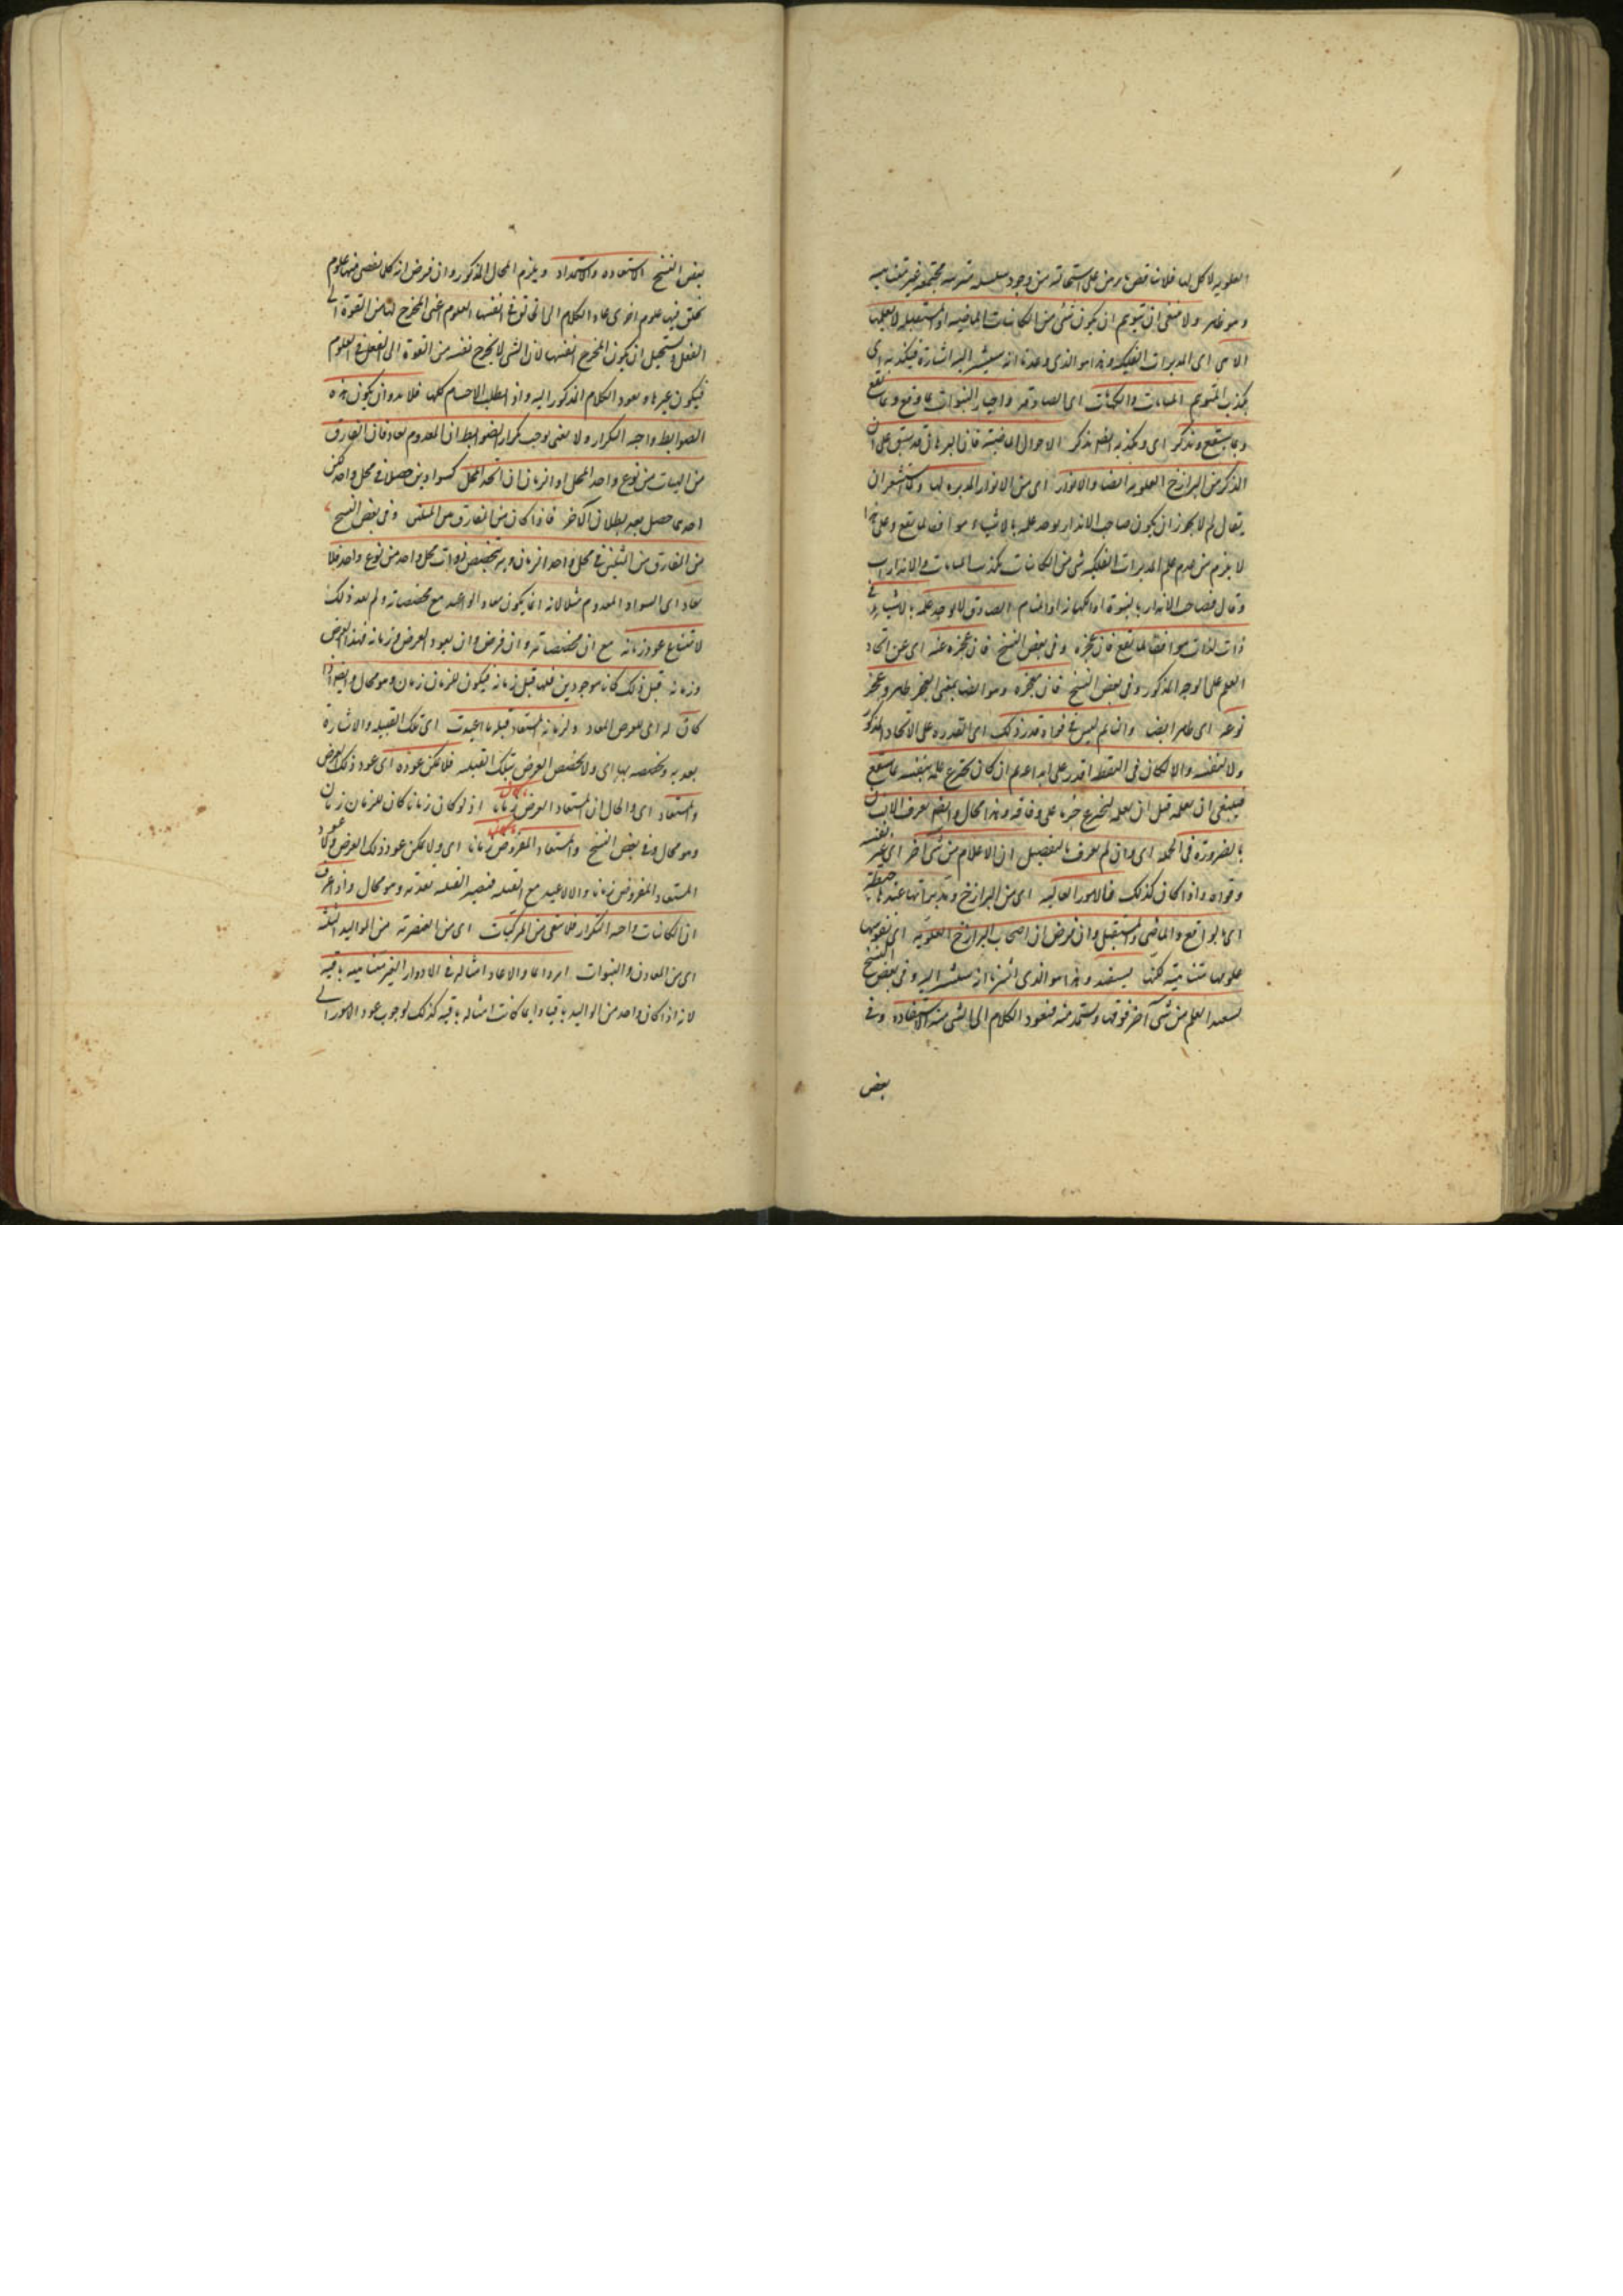 العلوية لا كل لها فلا يناقض ما برهن على استحالته من وجود سلسلة مترتبة مجتمعة غير متناهية
وهو ظاهر ولا ينبغى ان يتوهم ان يكون شئ من الكائنات الماضية او المستقبلة لا يعلمها
اى المدبرات الفلكية وهذا هو الذى وعدنا انه سيشير اليه اشارة فيكذبه اى
يكذب المتوهم المنامات والكهانات اى الصادقة واخبار النبوات بما وقع وما يقع
وبما سيقع وتذكر اى ويكذبه ايضا تذكر الاحوال الماضية فان البرهان قد سبق على ان
الذكر من البرازخ العلوية ايضا والانوار اى من الانوار المدبرة لها
يقال لم لا يجوز ان يكون صاحب الانذار يوجد علمه بالاشياء موافقا لما يقع وعلى هذا
لا يلزم من عدم علم المدبرات الفلكية شئ من الكائنات يكذب المنامات والانذارات
وقال فصاحب الانذار بالنبوة او الكهانة او المنام الصادق لا يوجد علمه بالاشياء فى
ذات لذات موافقا لما يقع فان عجزه وفى بعض النسخ فان عجزه عنه اى عن ايجاد
العلم على الوجه المذكور وفى بعض النسخ فان معجزه وهو ايضا بمعنى العجز ظاهر وعجز
نوعه اى ظاهر ايضا والنائم ليس فى قواه قدر ذلك اى القدرة على الايجاد المذكور
ولا لنفسه والا لكان فى اليقظة اقدر على ابداعه ثم ان كان يخترع علمه بنفسه بما سيقع
فينبغى ان يعلمه قبل ان يعلمه ليخترع جزما على وفاقه وهذا محال وايضا يعرف الانسان
بالضرورة فى الجملة اى وان لم يعرف بالتفصيل ان الاعلام من شئ آخر اى غير نفسه
وقواه واذا كان كذلك فالامور العالية اى من البرازخ ومدبراتها عندها محيطة
اى بالواقع والماضى والمستقبل وان فرض ان اصحاب البرازخ العلوية اى نفوسها
علومها متناهية لكنها يستفيد وهذا هو الذى اشرنا انه سيشير اليه وفى بعض النسخ
يستفيد العلم من شئ آخر فوقها ويستمد منه فيعود الكلام الى الشئ منه الاستفادة وفى
بعض
بعض النسخ الاستفادة والاستمداد ويلزم المحال المذكور وان فرض انه كل نقص فيها علوم
يخلق فيها علوم اخرى عاد الكلام الى انفسها العلوم عن المخرج لها من القوة الى
الفعل ويستحيل ان يكون المخرج انفسها لان الشئ لا يخرج نفسه من القوة الى الفعل فى العلوم
فيكون غيرها ويعود الكلام المذكور اليه واذ لم تطلب الاجسام كلها فلا بد وان يكون هذه
الضوابط واجبة التكرار ولا يعنى بوجب تكرار الضوابط ان المعدوم يعاد فان الفارق
من الهيئات من نوع واحد المحل او الزمان ان اتحد المحل كسوادين حصلا فى محل واحد لكن
احدهما حصل بعد بطلان الآخر فاذا كان من الفارق بين المثلين وفى بعض النسخ
من الفارق بين الشيئين فى محل واحد الزمان وبه تخصيص ذوات محل واحد من نوع واحد فلا
يعاد اى السواد المعدوم مثلا لانه انما يكون معادا لو اعيد مع مخصصاته ولم يعد ذلك
لامتناع عود زمانه مع ان مخصصاته وان فرض ان يعود العرض وزمانه فهذا العرض
وزمانه قبل ذلك كانا موجودين فلهما قبل زمانه فيكون للزمان زمان وهو محال وايضا اذا
كان له اى للعرض المعاد ولزمانه المستعاد قبلية ما اعيدت اى تلك القبلية والاشارة
بعد به وتخصصه بها اى ولا تخصص العرض بتلك القبلية فلا يمكن عوده اى عود ذلك العرض
والمستعاد اى والحال ان المستعاد العرض زمانا اذ لو كان زمانا كان للزمان زمان
وهو محال وفى بعض النسخ والمستعاد المفروض زمانا اى ولا يمكن عود ذلك العرض
المستعاد المفروض زمانا والا لاعيد مع القبلية فتصير القبلية بعدية وهو محال واذ اعرف
ان الكائنات واجبة التكرار فلا يبقى من المركبات اى من العنصرية من المواليد الثلثة
اى من المعادن والنبوات امر دائما والا عاد امثاله فى الادوار الغير متناهية باقية
لانه اذا كان واحد من المواليد باقيا دائما كانت امثاله باقية كذلك لوجوب عود الامور الى